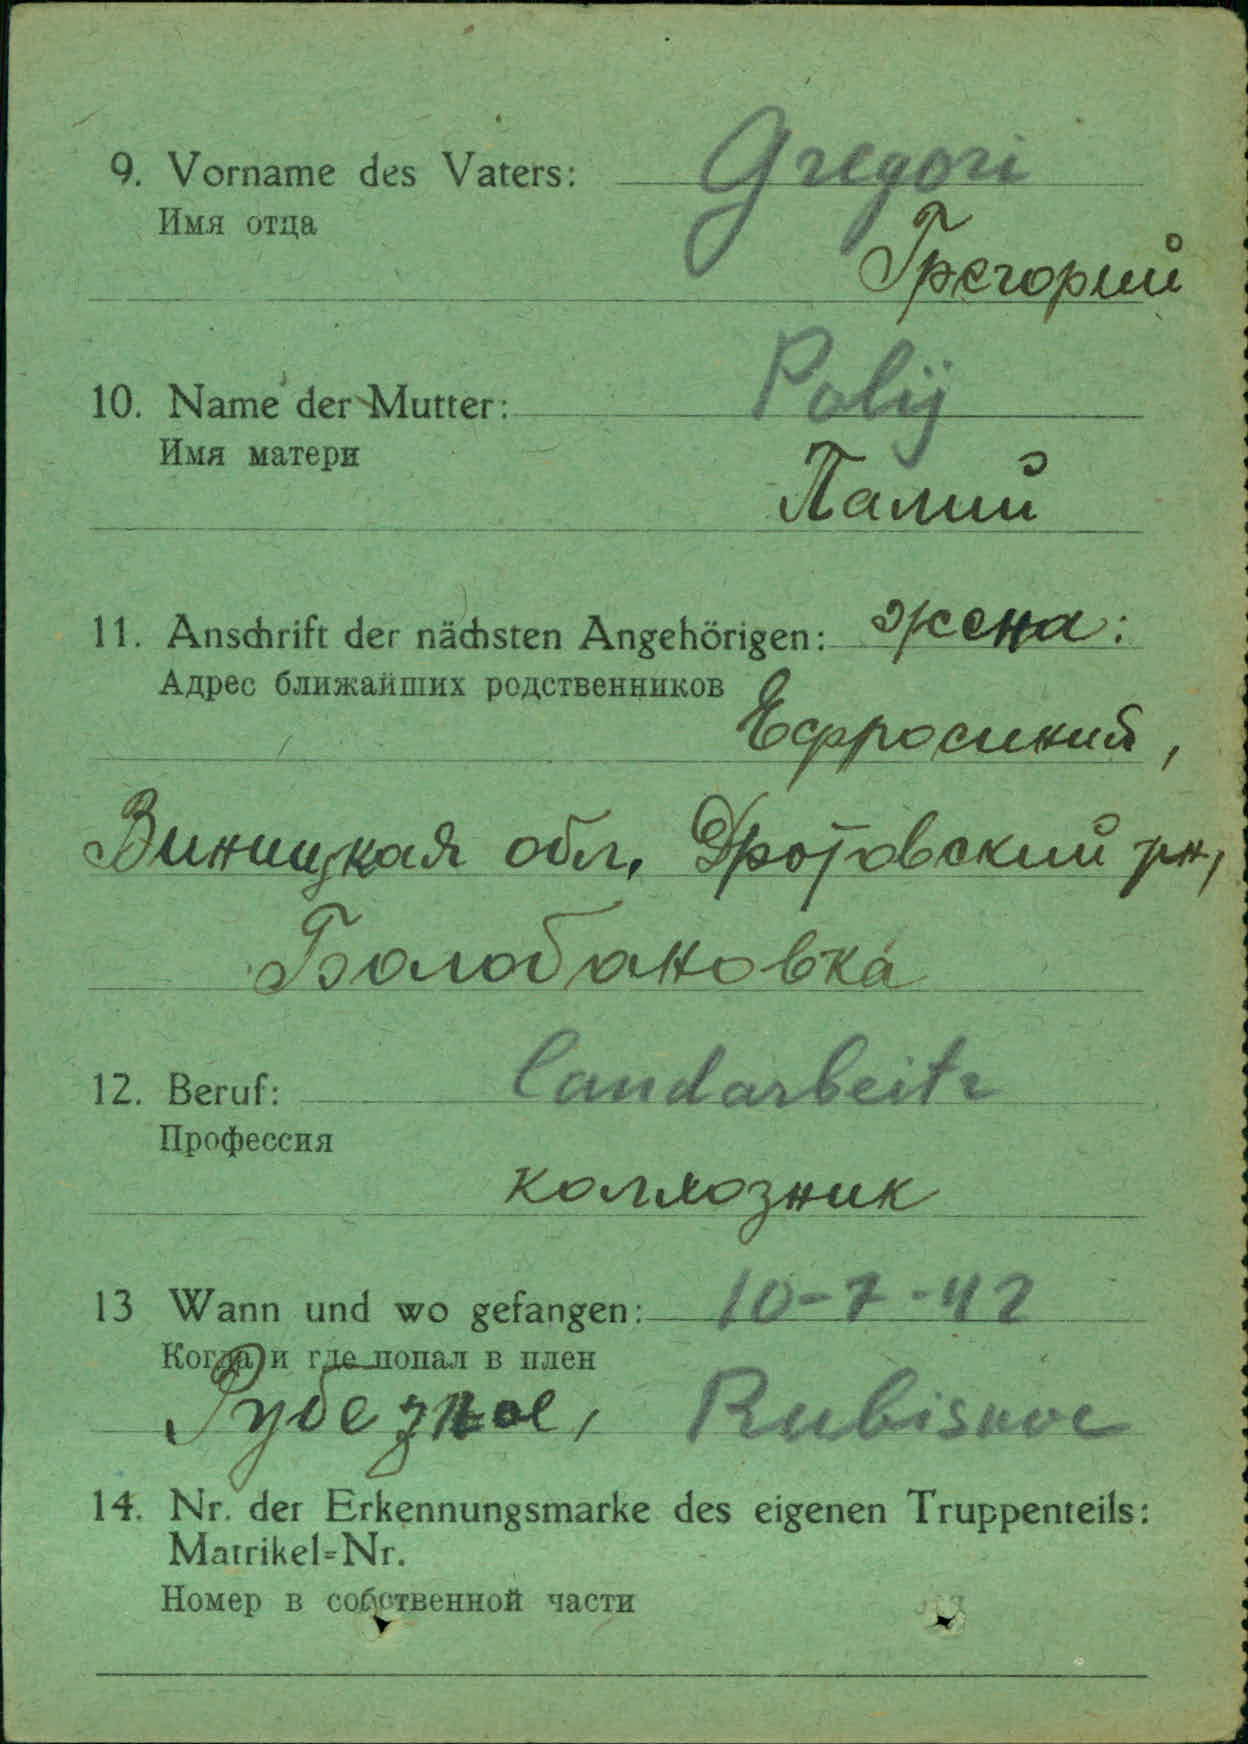 9. Vorname des Vaters: Gregori
Имя отца
Грегорий
10. Name der Mutter: Polij
Имя матери
Палий
11. Anschrift der nächsten Angehörigen: жена:
Адрес ближайших родственников
Ефросиний,
Виницкая обл. Дротовский рн,
Болобановка
12. Beruf: Landarbeitr
Профессия
колхозник
13 Wann und wo gefangen: 10-7-42
Когда и где попал в плен
Рубезное, Rubisnoe
14. Nr. der Erkennungsmarke des eigenen Truppenteils:
Matrikel=Nr.
Номер в собственной части